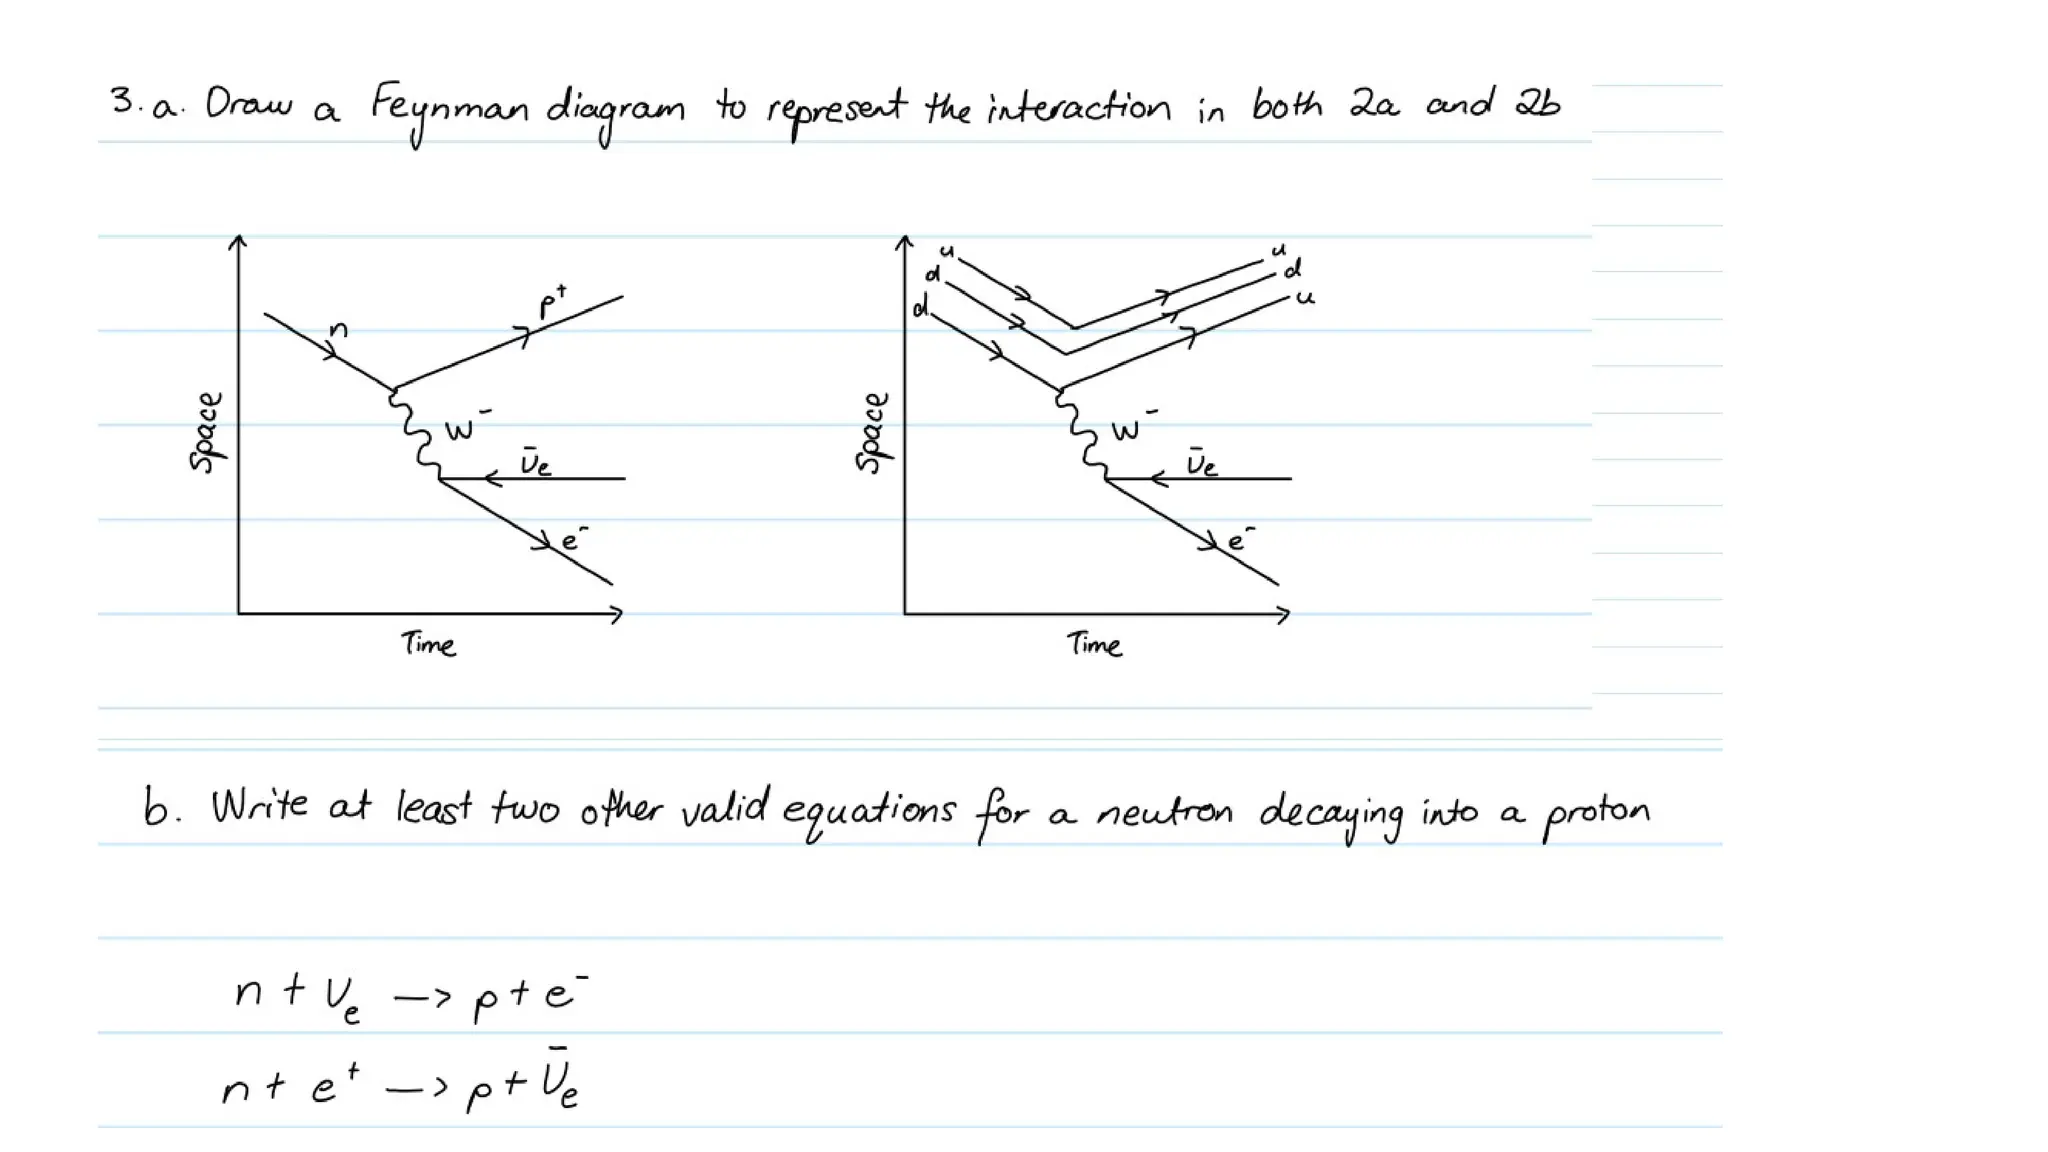 3. a. Draw a Feynman diagram to represent the interaction in both 2a and 2b
n
p⁺
W⁻
ν̄e
e⁻
Space
Time
u
d
d
u
d
u
W⁻
ν̄e
e⁻
Space
Time
b. Write at least two other valid equations for a neutron decaying into a proton
n + νe —> p + e⁻
n + e⁺ —> p + ν̄e